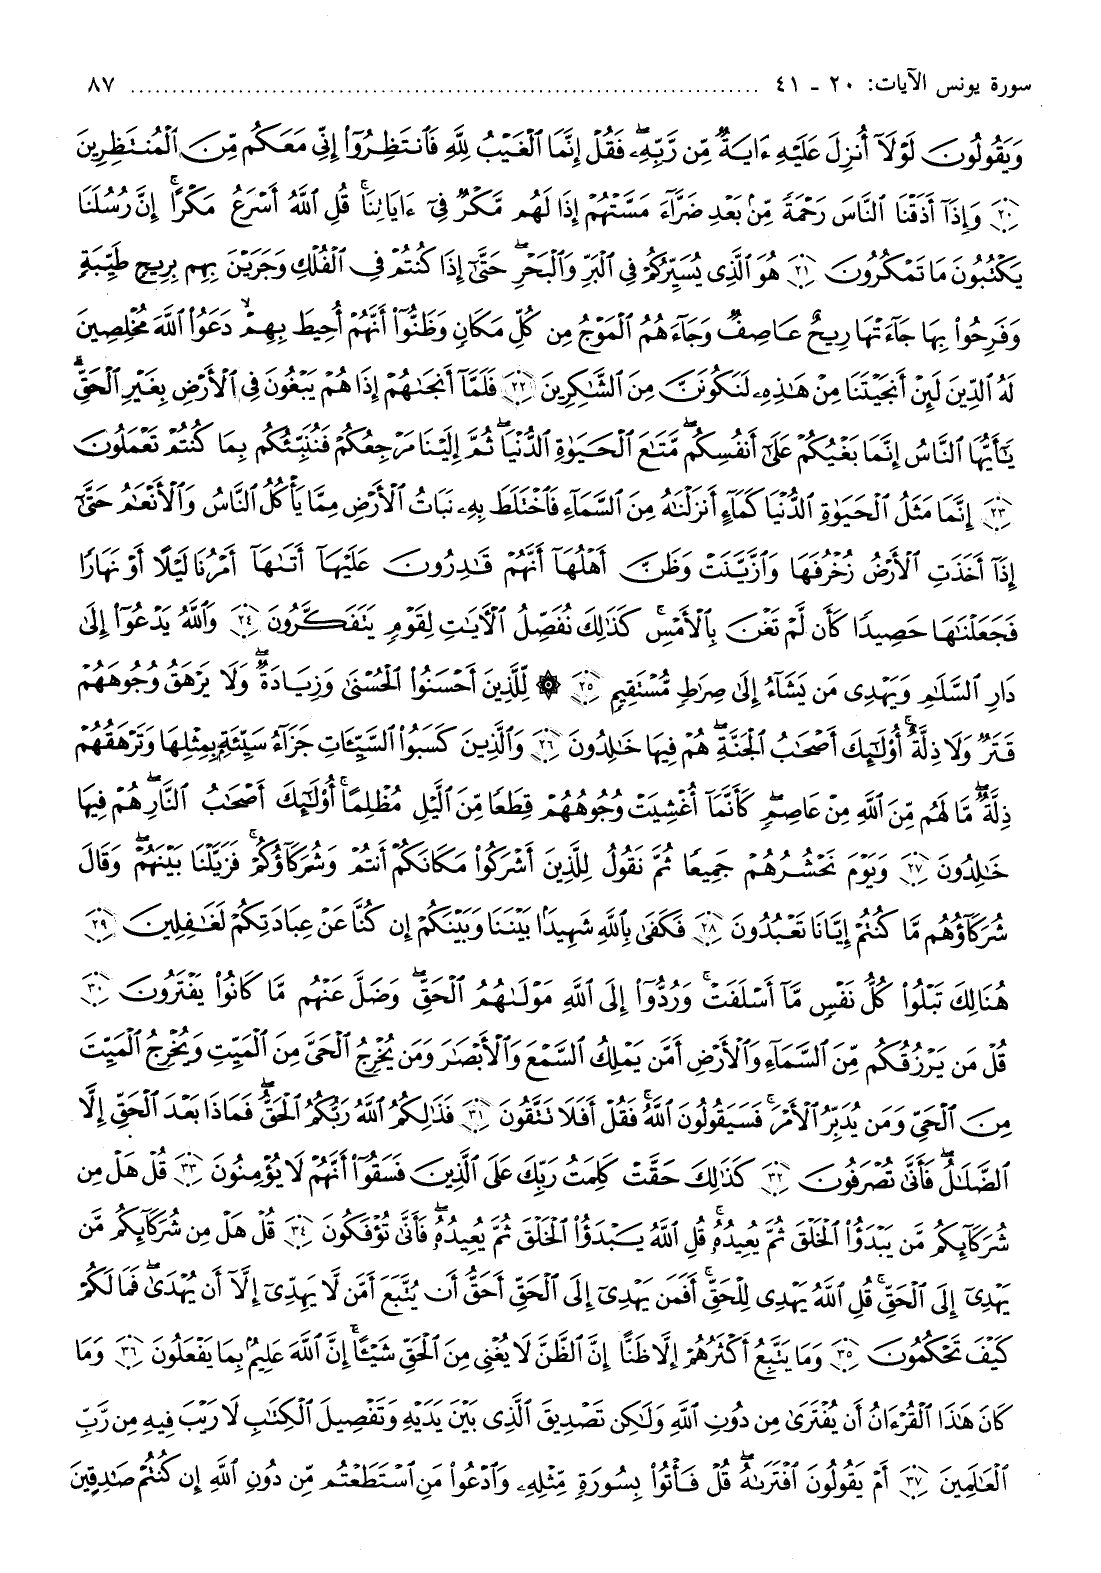 سورة يونس الآيات: ٢٠ - ٤١ ........................................ ٨٧
وَيَقُولُونَ لَوْلَآ أُنزِلَ عَلَيْهِ ءَايَةٌ مِّن رَّبِّهِۦۖ فَقُلْ إِنَّمَا ٱلْغَيْبُ لِلَّهِ فَٱنتَظِرُوٓا۟ إِنِّى مَعَكُم مِّنَ ٱلْمُنتَظِرِينَ
﴿٢٠﴾ وَإِذَآ أَذَقْنَا ٱلنَّاسَ رَحْمَةً مِّنۢ بَعْدِ ضَرَّآءَ مَسَّتْهُمْ إِذَا لَهُم مَّكْرٌ فِىٓ ءَايَاتِنَاۚ قُلِ ٱللَّهُ أَسْرَعُ مَكْرًاۚ إِنَّ رُسُلَنَا
يَكْتُبُونَ مَا تَمْكُرُونَ ﴿٢١﴾ هُوَ ٱلَّذِى يُسَيِّرُكُمْ فِى ٱلْبَرِّ وَٱلْبَحْرِۖ حَتَّىٰٓ إِذَا كُنتُمْ فِى ٱلْفُلْكِ وَجَرَيْنَ بِهِم بِرِيحٍ طَيِّبَةٍ
وَفَرِحُوا۟ بِهَا جَآءَتْهَا رِيحٌ عَاصِفٌ وَجَآءَهُمُ ٱلْمَوْجُ مِن كُلِّ مَكَانٍ وَظَنُّوٓا۟ أَنَّهُمْ أُحِيطَ بِهِمْۙ دَعَوُا۟ ٱللَّهَ مُخْلِصِينَ
لَهُ ٱلدِّينَ لَئِنْ أَنجَيْتَنَا مِنْ هَٰذِهِۦ لَنَكُونَنَّ مِنَ ٱلشَّٰكِرِينَ ﴿٢٢﴾ فَلَمَّآ أَنجَىٰهُمْ إِذَا هُمْ يَبْغُونَ فِى ٱلْأَرْضِ بِغَيْرِ ٱلْحَقِّۗ
يَٰٓأَيُّهَا ٱلنَّاسُ إِنَّمَا بَغْيُكُمْ عَلَىٰٓ أَنفُسِكُمۖ مَّتَٰعَ ٱلْحَيَوٰةِ ٱلدُّنْيَاۖ ثُمَّ إِلَيْنَا مَرْجِعُكُمْ فَنُنَبِّئُكُم بِمَا كُنتُمْ تَعْمَلُونَ
﴿٢٣﴾ إِنَّمَا مَثَلُ ٱلْحَيَوٰةِ ٱلدُّنْيَا كَمَآءٍ أَنزَلْنَٰهُ مِنَ ٱلسَّمَآءِ فَٱخْتَلَطَ بِهِۦ نَبَاتُ ٱلْأَرْضِ مِمَّا يَأْكُلُ ٱلنَّاسُ وَٱلْأَنْعَٰمُ حَتَّىٰٓ
إِذَآ أَخَذَتِ ٱلْأَرْضُ زُخْرُفَهَا وَٱزَّيَّنَتْ وَظَنَّ أَهْلُهَآ أَنَّهُمْ قَٰدِرُونَ عَلَيْهَآ أَتَىٰهَآ أَمْرُنَا لَيْلًا أَوْ نَهَارًا
فَجَعَلْنَٰهَا حَصِيدًا كَأَن لَّمْ تَغْنَ بِٱلْأَمْسِۚ كَذَٰلِكَ نُفَصِّلُ ٱلْءَايَٰتِ لِقَوْمٍ يَتَفَكَّرُونَ ﴿٢٤﴾ وَٱللَّهُ يَدْعُوٓا۟ إِلَىٰ
دَارِ ٱلسَّلَٰمِ وَيَهْدِى مَن يَشَآءُ إِلَىٰ صِرَٰطٍ مُّسْتَقِيمٍ ﴿٢٥﴾ ۞ لِّلَّذِينَ أَحْسَنُوا۟ ٱلْحُسْنَىٰ وَزِيَادَةٌۖ وَلَا يَرْهَقُ وُجُوهَهُمْ
قَتَرٌ وَلَا ذِلَّةٌۚ أُو۟لَٰٓئِكَ أَصْحَٰبُ ٱلْجَنَّةِۖ هُمْ فِيهَا خَٰلِدُونَ ﴿٢٦﴾ وَٱلَّذِينَ كَسَبُوا۟ ٱلسَّيِّـَٔاتِ جَزَآءُ سَيِّئَةٍۭ بِمِثْلِهَا وَتَرْهَقُهُمْ
ذِلَّةٌۖ مَّا لَهُم مِّنَ ٱللَّهِ مِنْ عَاصِمٍۖ كَأَنَّمَآ أُغْشِيَتْ وُجُوهُهُمْ قِطَعًا مِّنَ ٱلَّيْلِ مُظْلِمًاۚ أُو۟لَٰٓئِكَ أَصْحَٰبُ ٱلنَّارِۖ هُمْ فِيهَا
خَٰلِدُونَ ﴿٢٧﴾ وَيَوْمَ نَحْشُرُهُمْ جَمِيعًا ثُمَّ نَقُولُ لِلَّذِينَ أَشْرَكُوا۟ مَكَانَكُمْ أَنتُمْ وَشُرَكَآؤُكُمْۚ فَزَيَّلْنَا بَيْنَهُمْۖ وَقَالَ
شُرَكَآؤُهُم مَّا كُنتُمْ إِيَّانَا تَعْبُدُونَ ﴿٢٨﴾ فَكَفَىٰ بِٱللَّهِ شَهِيدًۢا بَيْنَنَا وَبَيْنَكُمْ إِن كُنَّا عَنْ عِبَادَتِكُمْ لَغَٰفِلِينَ ﴿٢٩﴾
هُنَالِكَ تَبْلُوا۟ كُلُّ نَفْسٍ مَّآ أَسْلَفَتْۚ وَرُدُّوٓا۟ إِلَى ٱللَّهِ مَوْلَىٰهُمُ ٱلْحَقِّۖ وَضَلَّ عَنْهُم مَّا كَانُوا۟ يَفْتَرُونَ ﴿٣٠﴾
قُلْ مَن يَرْزُقُكُم مِّنَ ٱلسَّمَآءِ وَٱلْأَرْضِ أَمَّن يَمْلِكُ ٱلسَّمْعَ وَٱلْأَبْصَٰرَ وَمَن يُخْرِجُ ٱلْحَىَّ مِنَ ٱلْمَيِّتِ وَيُخْرِجُ ٱلْمَيِّتَ
مِنَ ٱلْحَىِّ وَمَن يُدَبِّرُ ٱلْأَمْرَۚ فَسَيَقُولُونَ ٱللَّهُۚ فَقُلْ أَفَلَا تَتَّقُونَ ﴿٣١﴾ فَذَٰلِكُمُ ٱللَّهُ رَبُّكُمُ ٱلْحَقُّۖ فَمَاذَا بَعْدَ ٱلْحَقِّ إِلَّا
ٱلضَّلَٰلُۖ فَأَنَّىٰ تُصْرَفُونَ ﴿٣٢﴾ كَذَٰلِكَ حَقَّتْ كَلِمَتُ رَبِّكَ عَلَى ٱلَّذِينَ فَسَقُوٓا۟ أَنَّهُمْ لَا يُؤْمِنُونَ ﴿٣٣﴾ قُلْ هَلْ مِن
شُرَكَآئِكُم مَّن يَبْدَؤُا۟ ٱلْخَلْقَ ثُمَّ يُعِيدُهُۥۚ قُلِ ٱللَّهُ يَبْدَؤُا۟ ٱلْخَلْقَ ثُمَّ يُعِيدُهُۥۖ فَأَنَّىٰ تُؤْفَكُونَ ﴿٣٤﴾ قُلْ هَلْ مِن شُرَكَآئِكُم مَّن
يَهْدِىٓ إِلَى ٱلْحَقِّۚ قُلِ ٱللَّهُ يَهْدِى لِلْحَقِّۗ أَفَمَن يَهْدِىٓ إِلَى ٱلْحَقِّ أَحَقُّ أَن يُتَّبَعَ أَمَّن لَّا يَهِدِّىٓ إِلَّآ أَن يُهْدَىٰۖ فَمَا لَكُمْ
كَيْفَ تَحْكُمُونَ ﴿٣٥﴾ وَمَا يَتَّبِعُ أَكْثَرُهُمْ إِلَّا ظَنًّاۚ إِنَّ ٱلظَّنَّ لَا يُغْنِى مِنَ ٱلْحَقِّ شَيْـًٔاۚ إِنَّ ٱللَّهَ عَلِيمٌۢ بِمَا يَفْعَلُونَ ﴿٣٦﴾ وَمَا
كَانَ هَٰذَا ٱلْقُرْءَانُ أَن يُفْتَرَىٰ مِن دُونِ ٱللَّهِ وَلَٰكِن تَصْدِيقَ ٱلَّذِى بَيْنَ يَدَيْهِ وَتَفْصِيلَ ٱلْكِتَٰبِ لَا رَيْبَ فِيهِ مِن رَّبِّ
ٱلْعَٰلَمِينَ ﴿٣٧﴾ أَمْ يَقُولُونَ ٱفْتَرَىٰهُۖ قُلْ فَأْتُوا۟ بِسُورَةٍ مِّثْلِهِۦ وَٱدْعُوا۟ مَنِ ٱسْتَطَعْتُم مِّن دُونِ ٱللَّهِ إِن كُنتُمْ صَٰدِقِينَ